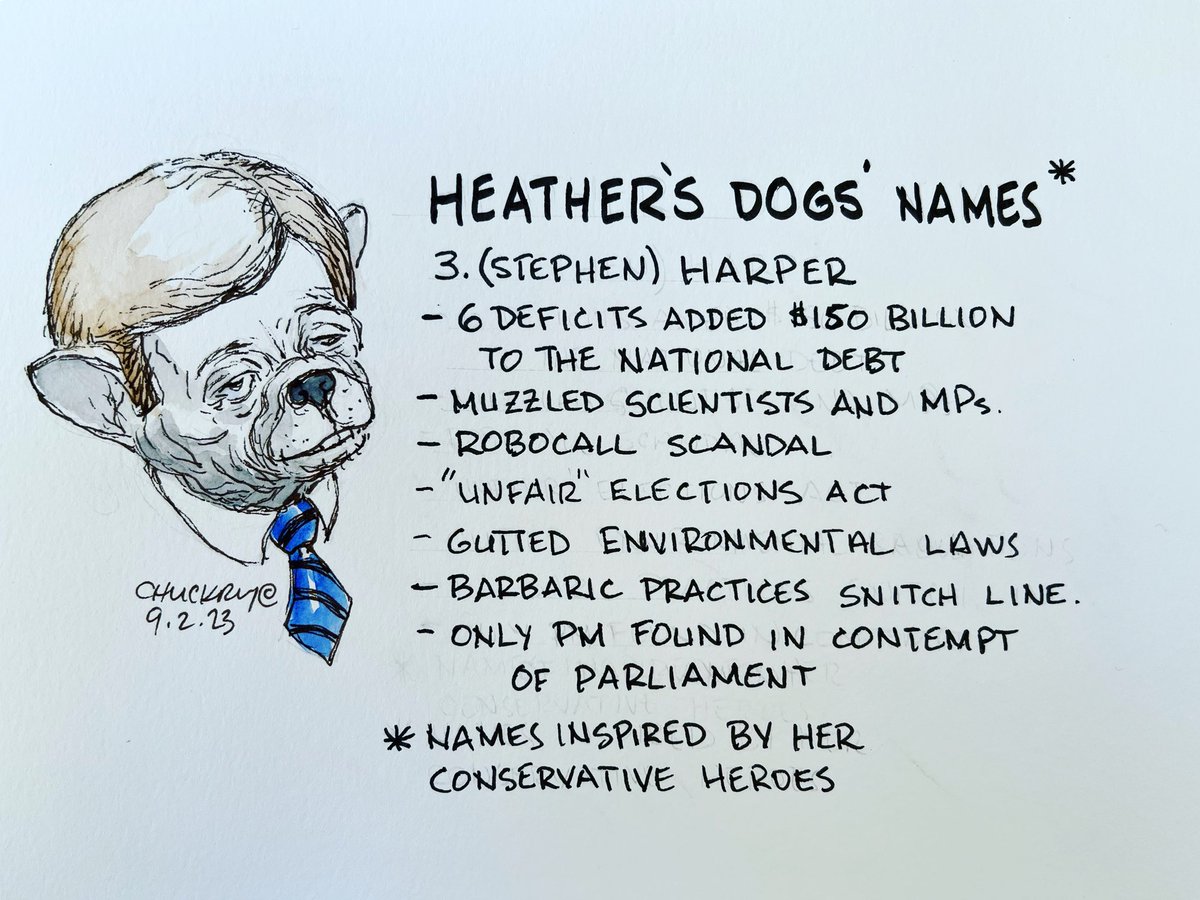 HEATHER'S DOGS' NAMES*
3. (STEPHEN) HARPER
- 6 DEFICITS ADDED $150 BILLION
TO THE NATIONAL DEBT
- MUZZLED SCIENTISTS AND MPs.
- ROBOCALL SCANDAL
- "UNFAIR" ELECTIONS ACT
- GUTTED ENVIRONMENTAL LAWS
- BARBARIC PRACTICES SNITCH LINE.
- ONLY PM FOUND IN CONTEMPT
OF PARLIAMENT
* NAMES INSPIRED BY HER
CONSERVATIVE HEROES
9.2.23